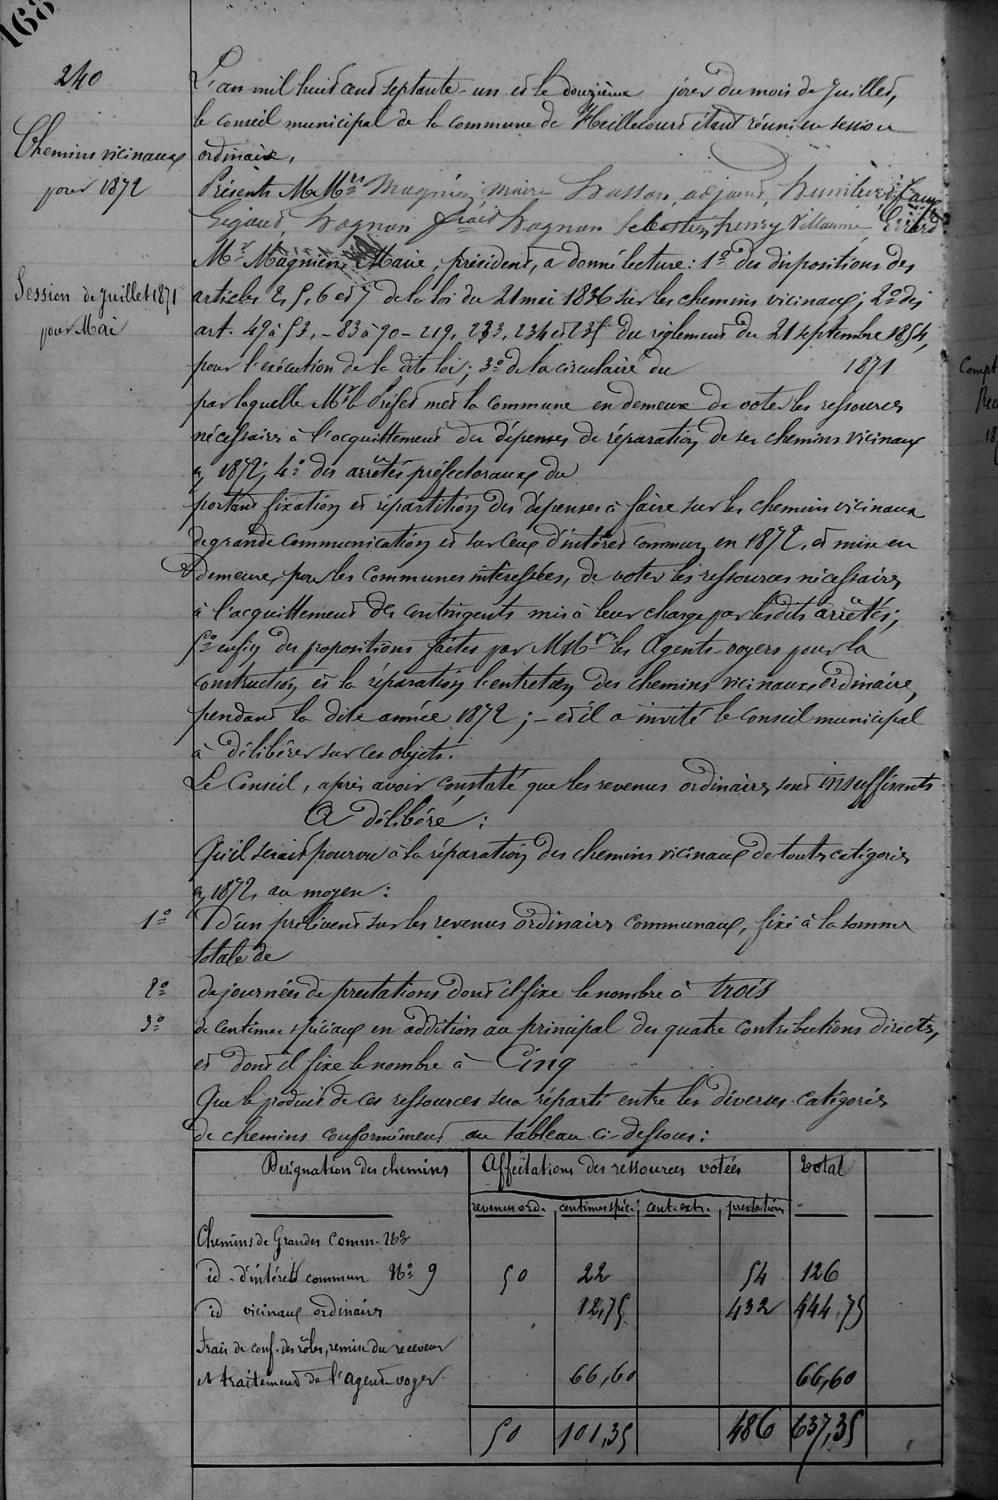 168
240
Chemins vicinaux
pour 1872
Session de Juillet 1871
pour Mai
L'an mil huit cent septante-un et le douzième jour du mois de Juillet,
le conseil municipal de la commune de Heillecourt étant réuni en session
ordinaire,
Présents MM.rs Magnien, maire Husson, adjoint,
françois Hognon Sebastien, henry Villaumé,
Mr. Magnien, Maire, président, a donné lecture: 1º des dispositions des
articles 2, 5, 6 et 7 de la loi du 21 mai 1836 sur les chemins vicinaux; 2º des
art. 49 à 53, - 83 à 90 - 219, 233, 234 et 235 du règlement du 21 septembre 1854,
pour l'exécution de la dite loi; 3º de la circulaire du 1871
par laquelle Mr le Préfet met la commune en demeure de voter les ressources
nécessaires à l'acquittement des dépenses de réparation de ses chemins vicinaux
en 1872; 4º des arrêtés préfectoraux du
portant fixation et répartition des dépenses à faire sur les chemins vicinaux
de grande communication et sur ceux d'intéret commun en 1872, et mise en
demeure, pour les communes intéressées, de voter les ressources nécessaires
à l'acquittement des contingents mis à leur charge par lesdits arrêtés;
5º enfin des propositions faites par MM.rs les Agents-voyers pour la
construction et la réparation l'entretien des chemins vicinaux ordinaires,
pendant la dite année 1872; - et il a invité le conseil municipal
à délibérer sur ces objets.
Le Conseil, après avoir constaté que les revenus ordinaires sont insuffisants
A délibéré:
Qu'il serait pourvu à la réparation des chemins vicinaux de toutes catégories
en 1872, au moyen:
1º D'un prélèvement sur les revenus ordinaires communaux, fixé à la somme
totale de
2º de journées de prestations dont il fixe le nombre à trois
3º de centimes spéciaux en addition au principal des quatre contributions directes,
et dont il fixe le nombre à Cinq
Que le produit de ces ressources sera réparti entre les diverses catégories
de chemins conformément au tableau ci-dessous:
Désignation des chemins Affectations des ressources votées Total
revenus ord. centimes spéc. cent. extr. prestations
Chemins de Grandes Comm. Nos
id. d'intérêt commun Nº 9 50 22 54 126
id vicinaux ordinaires 12,75 432 444,75
Frais de conf. des rôles, remise du receveur
et traitement de l'Agent-voyer 66,60 66,60
50 101,35 486 637,35
Compt